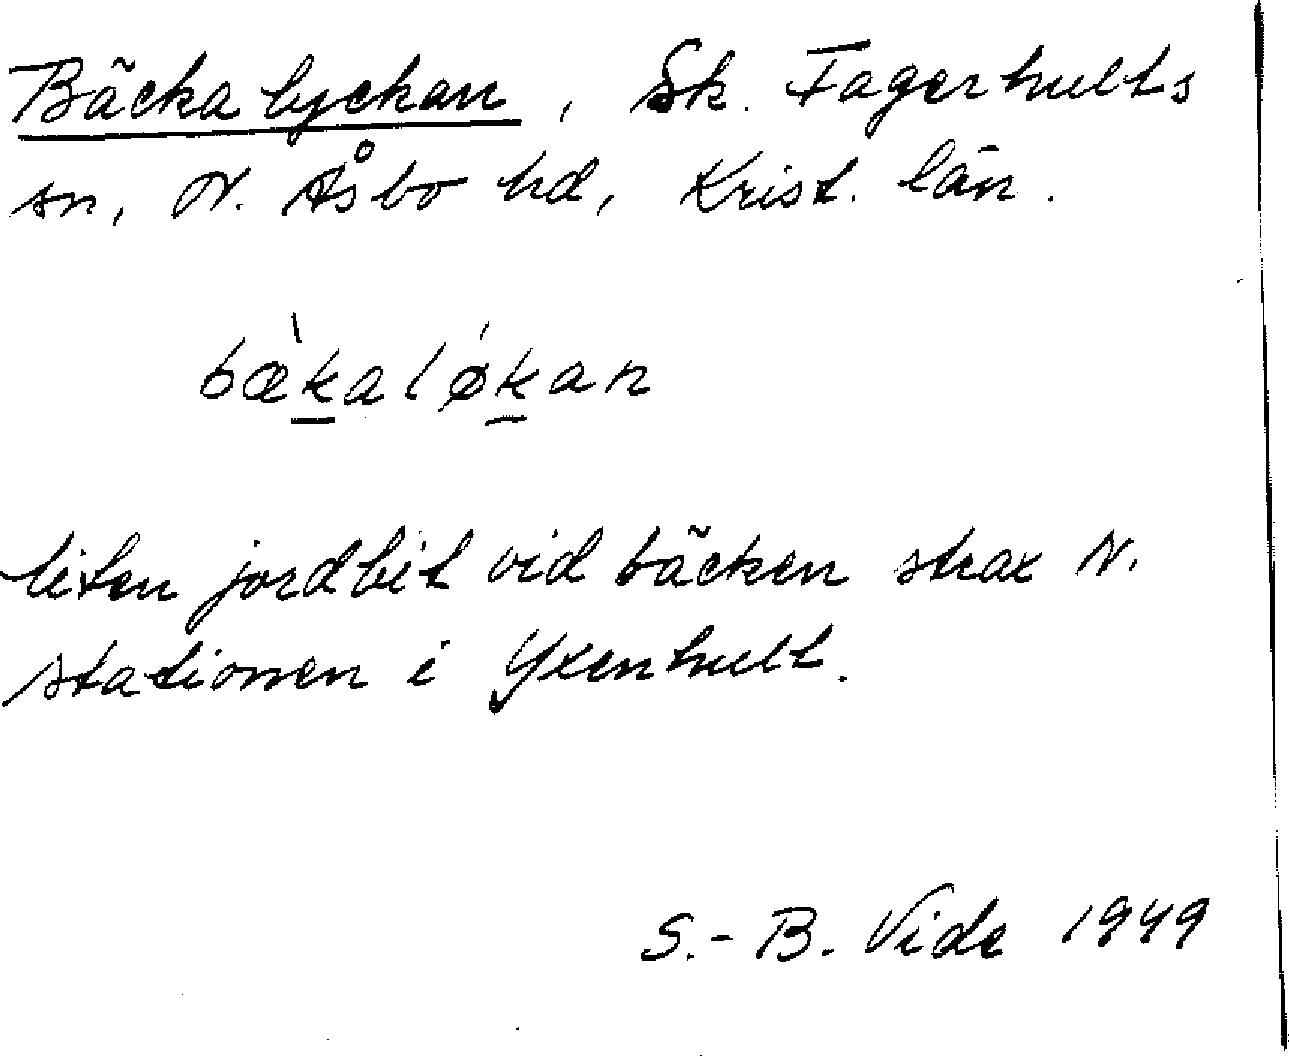 Bäckalyckan, Sk. Fagerhults
sn, N. Åsbo hd, Krist. län.
bæ̀kaløókan
liten jordbit vid bäcken strax N.
stationen i Yxenhult.
S.-B. Vide 1949